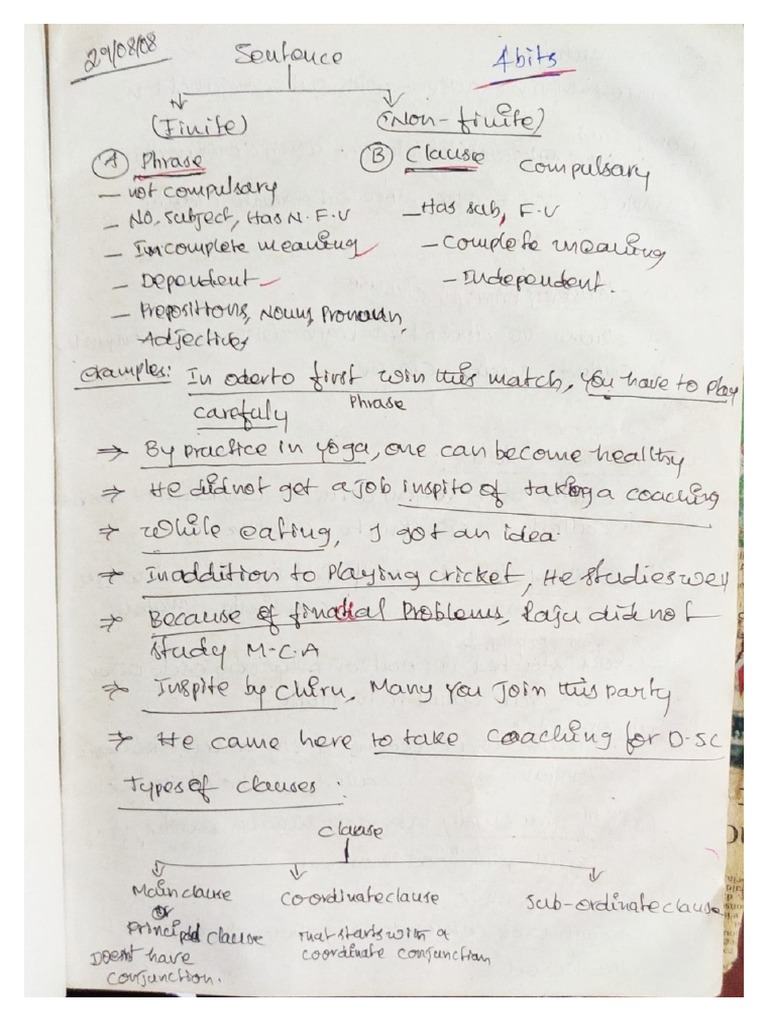 29/08/08
Sentence
4 bits
(Finite)
(Non-finite)
(A) Phrase
(B) Clause compulsary
– not compulsary
– No. Subject, Has N.F.V
– Has sub, F.V
– Incomplete meaning
– Complete meaning
– Dependent
– Independent.
– Prepositions, Nouns, Pronoun,
Adjectives
examples: In oderto first win this match, you have to play
carefuly
Phrase
⇒ By practice in yoga, one can become healthy
⇒ He did not get a job inspite of taking a coaching
⇒ While eating, I got an idea.
⇒ In addition to playing cricket, He studies well
⇒ Because of finacial Problems, Raju did not
study M.C.A
⇒ Inspite by chiru, Many you Join this party
⇒ He came here to take coaching for D-SC
Types of clauses:
clause
Main clause
or
Principal clause
Doesn't have
conjunction.
Co ordinate clause
that starts with a
coordinate conjunction
Sub-ordinate clause